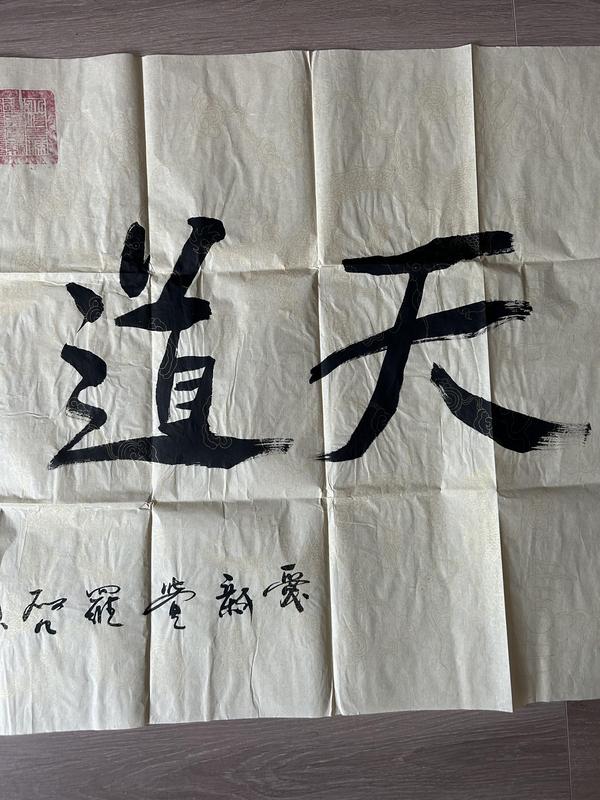 天道
愛新覺羅啓